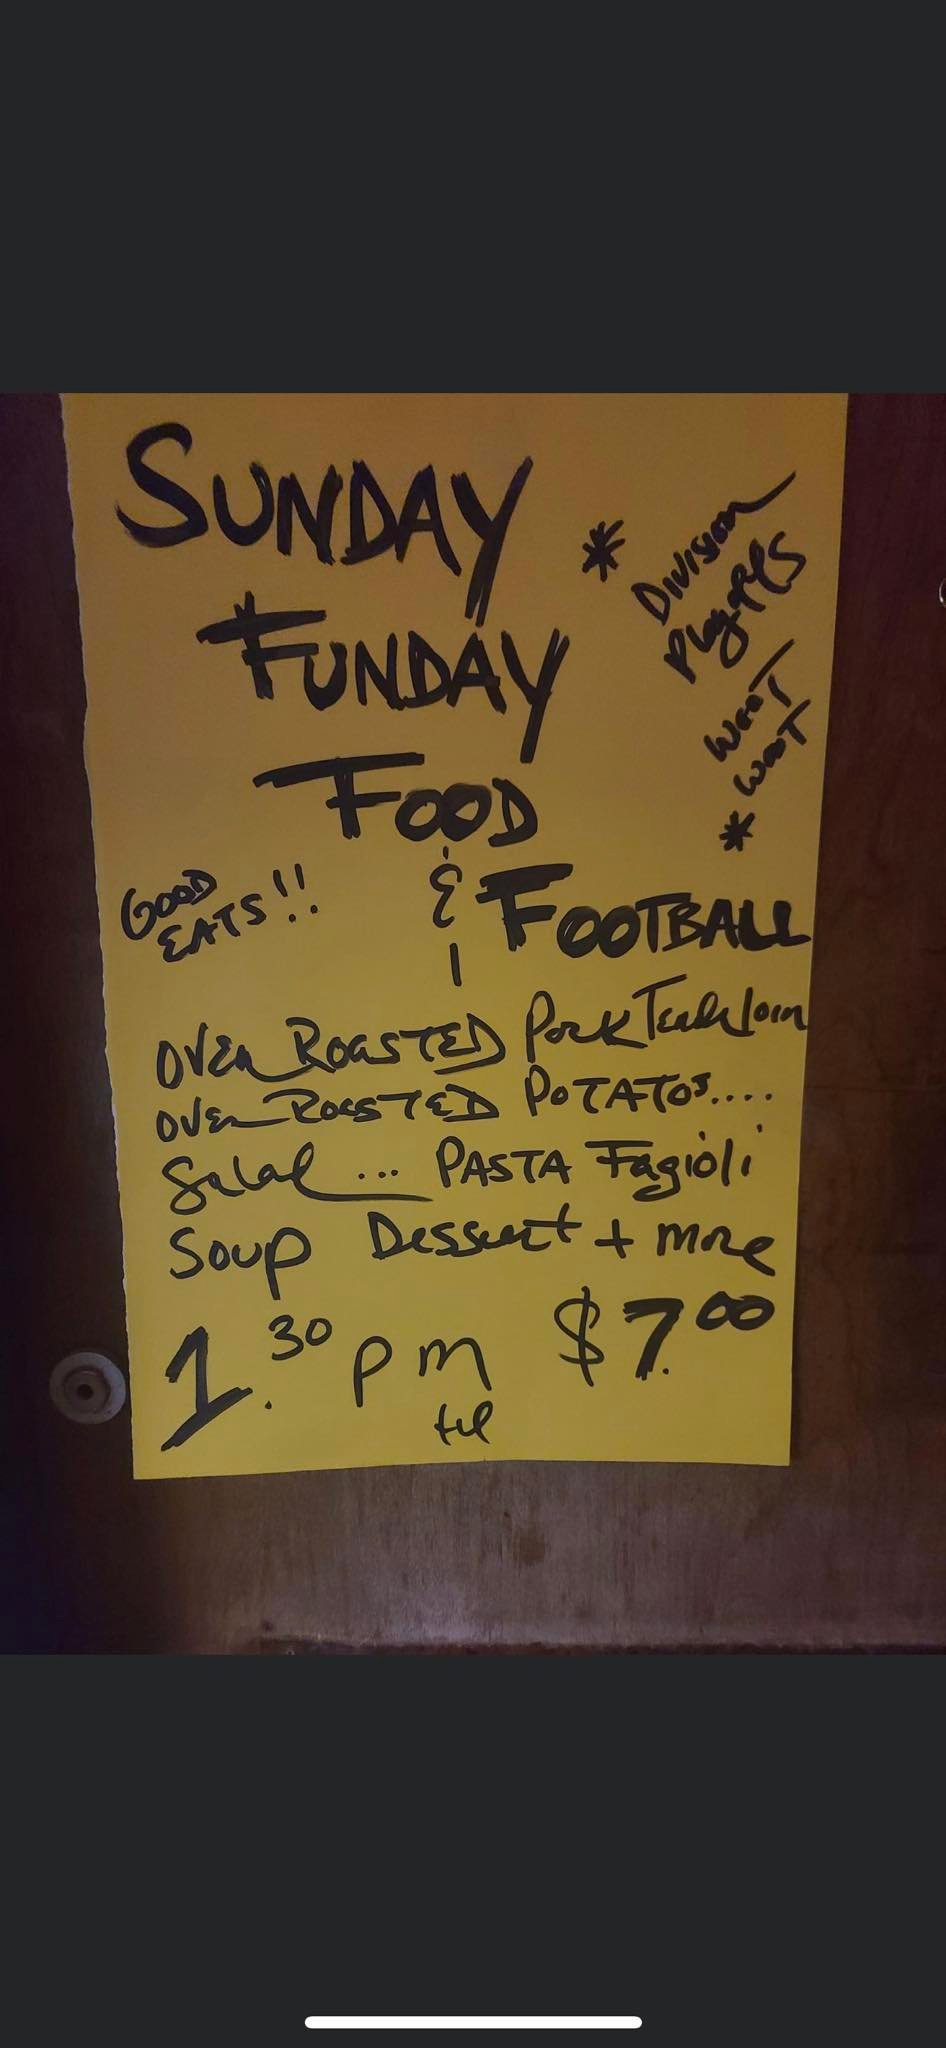 SUNDAY
FUNDAY
FOOD
&
FOOTBALL
* DIVISION
PlayoffS
WOOT
WOOT
*
GOOD
EATS!!
OVEn ROASTED Pork Tenderloin
OVEn ROASTED POTATOS....
Salad... PASTA Fagioli
Soup Dessert + more
1.30 pm $7.00
til